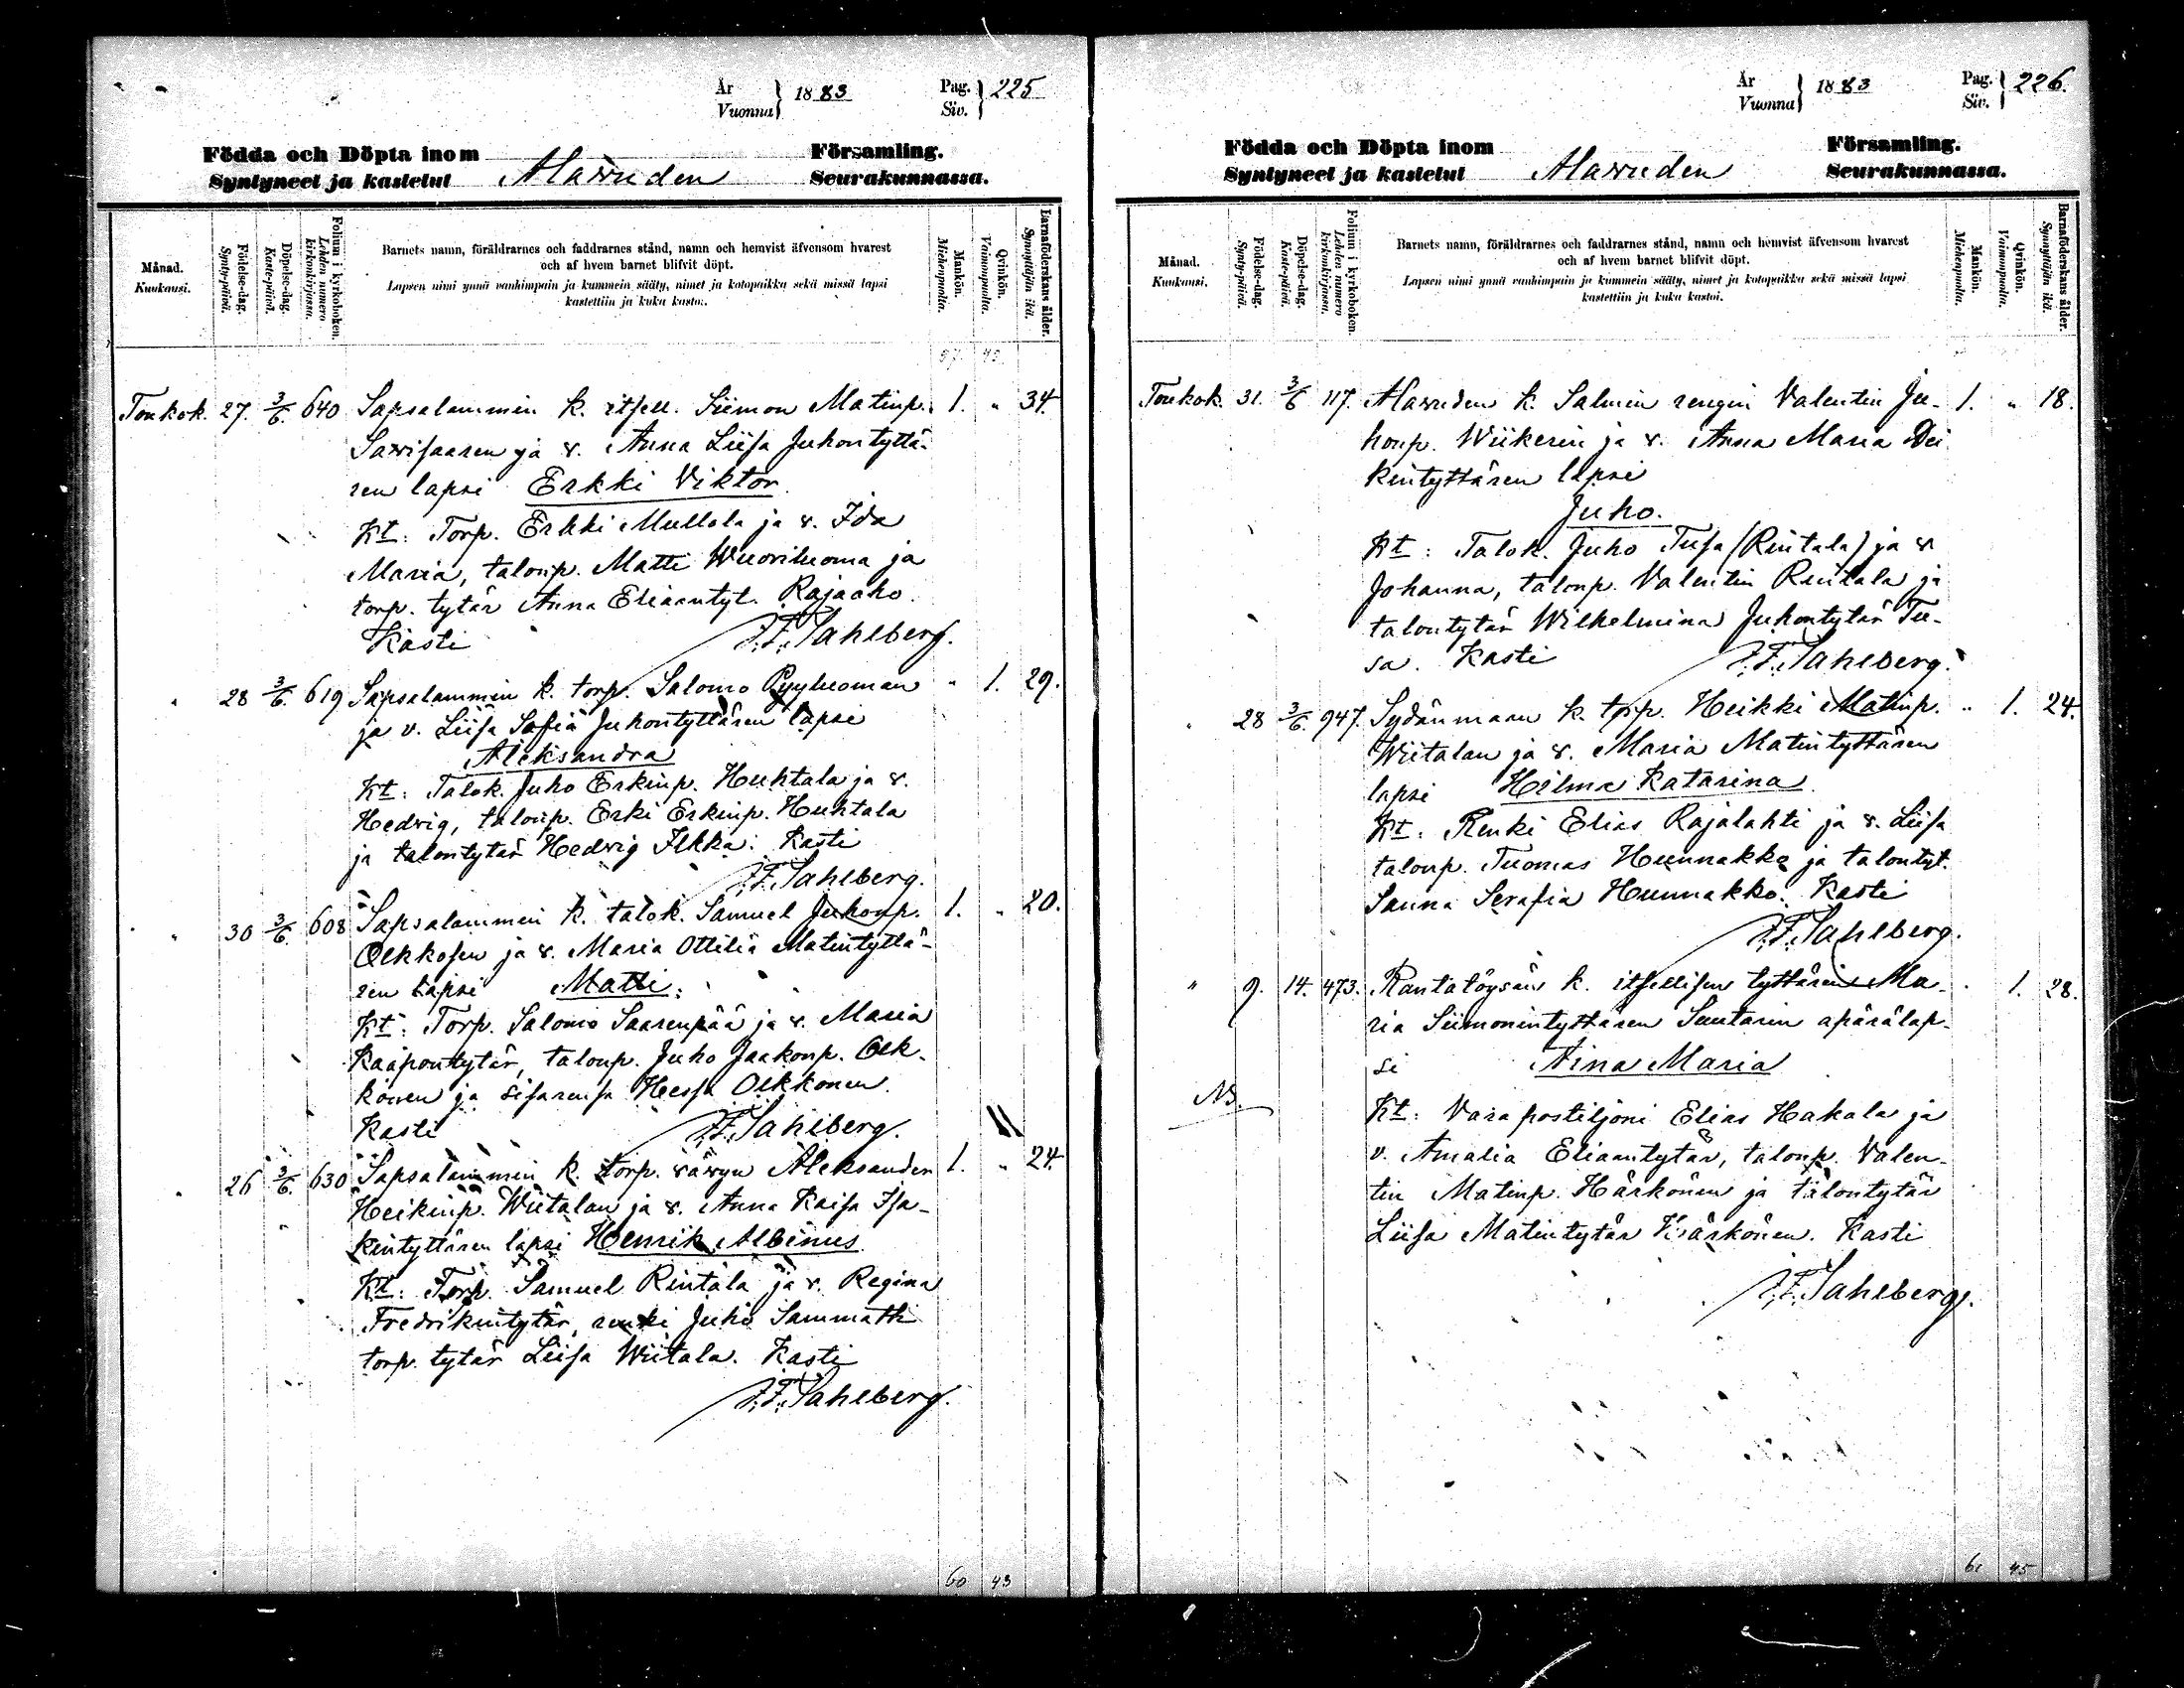 År
Vuonna } 1883 Pag.
Siv. } 225
Födda och Döpta inom Församling.
Syntyneet ja kastetut Alavuden Seurakunnassa.
Månad.
Kuukausi.
Födelse-dag.
Synty-päivä.
Döpelse-dag.
Kaste-päivä.
Folium i kyrkoboken.
Lehden numero kirkonkirjassa.
Barnets namn, föräldrarnes och faddrarnes stånd, namn och hemvist äfvensom hvarest
och af hvem barnet blifvit döpt.
Lapsen nimi ynnä vanhimpain ja kummein sääty, nimet ja kotopaikka sekä missä lapsi
kastettiin ja kuka kastoi.
Mankön.
Miehenpuolta.
Qvinkön.
Vaimonpuolta.
Barnaföderskans ålder.
Synnyttäjän ikä.
57. 43.
Toukok. 27. 3/6. 640 Sapsalammin k. itsell. Siimon Matinp. 1. " 34.
Savisaaren ja v. Anna Liisa Juhontyttä-
ren lapsi Erkki Viktor
Kt: Torp. Erkki Mullola ja v. Ida
Maria, talonp. Matti Wuoriluoma ja
torp. tytär Anna Eliaantyt. Rajaaho.
Kasti J.F. Sahlberg.
" 28 3/6. 619 Sapsalammin k. torp. Salomo Pyyluoman " 1. 29.
ja v. Liisa Sofia Juhontyttären lapsi
Aleksandra
Kt: Talok. Juho Erkinp. Huhtala ja v.
Hedvig, talonp. Erki Erkinp. Huhtala
ja talontytär Hedvig Ilkka. Kasti
J.F. Sahlberg.
" 30 3/6. 608 Sapsalammin k. talok. Samuel Juhonp. 1. " 20.
Olkkosen ja v. Maria Ottilia Matintyttä-
ren lapsi Matti.
Kt: Torp. Salomo Saarenpää ja v. Maria
Kaapontytär, talonp. Juho Jaakonp. Olk-
konen ja sisarensa Hessa Olkkonen.
Kasti J.F. Sahlberg.
" 26 3/6. 630 Sapsalammin k. torp. vävyn Aleksander 1. " 24.
Heikinp. Wiitalan ja v. Anna Kaisa Isa-
kintyttären lapsi Henrik Albinus
Kt: Torp. Samuel Rintala ja v. Regina
Fredrikintytär, renki Juho Sammatti
torp. tytär Liisa Wiitala. Kasti
J.F. Sahlberg.
60 43
År
Vuonna } 1883 Pag.
Siv. } 226.
Födda och Döpta inom Församling.
Syntyneet ja kastetut Alavuden Seurakunnassa.
Månad.
Kuukausi.
Födelse-dag.
Synty-päivä.
Döpelse-dag.
Kaste-päivä.
Folium i kyrkoboken.
Lehden numero kirkonkirjassa.
Barnets namn, föräldrarnes och faddrarnes stånd, namn och hemvist äfvensom hvarest
och af hvem barnet blifvit döpt.
Lapsen nimi ynnä vanhimpain ja kummein sääty, nimet ja kotopaikka sekä missä lapsi
kastettiin ja kuka kastoi.
Mankön.
Miehenpuolta.
Qvinkön.
Vaimonpuolta.
Barnaföderskans ålder.
Synnyttäjän ikä.
Toukok. 31. 3/6 117. Alavuden k. Salmin rengin Valentin Ju- 1. " 18.
honp. Wiikerin ja v. Anna Maria
kintyttären lapsi
Juho.
Kt: Talok. Juho Tusa (Rintala) ja v
Johanna, talonp. Valentin Rintala ja
talontytär Wilhelmina Juhontytär Tu-
sa. Kasti J.F. Sahlberg.
" 28 3/6. 947. Sydänmaan k. torp. Heikki Matinp. " 1. 24.
Wiitalan ja v. Maria Matintyttären
lapsi Hilma Katarina
Kt: Renki Elias Rajalahti ja v. Liisa
talonp. Tuomas Hunnakko ja talontyt.
Sanna Serafia Hunnakko. Kasti
J.F. Sahlberg.
" 9. 14. 473. Rantatöysän k. itsellisen tyttären Ma- " 1. 28.
ria Siimonintyttären Suutarin apärälap-
si Aina Maria
NB.
Kt: Varapostiljoni Elias Hakala ja
v. Amalia Eliaantytär, talonp. Valen-
tin Matinp. Härkönen ja talontytär
Liisa Matintytär Härkönen. Kasti
J.F. Sahlberg.
61 45